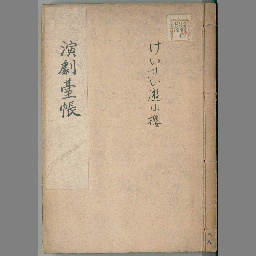 けいせい遊山桜
演劇臺帳